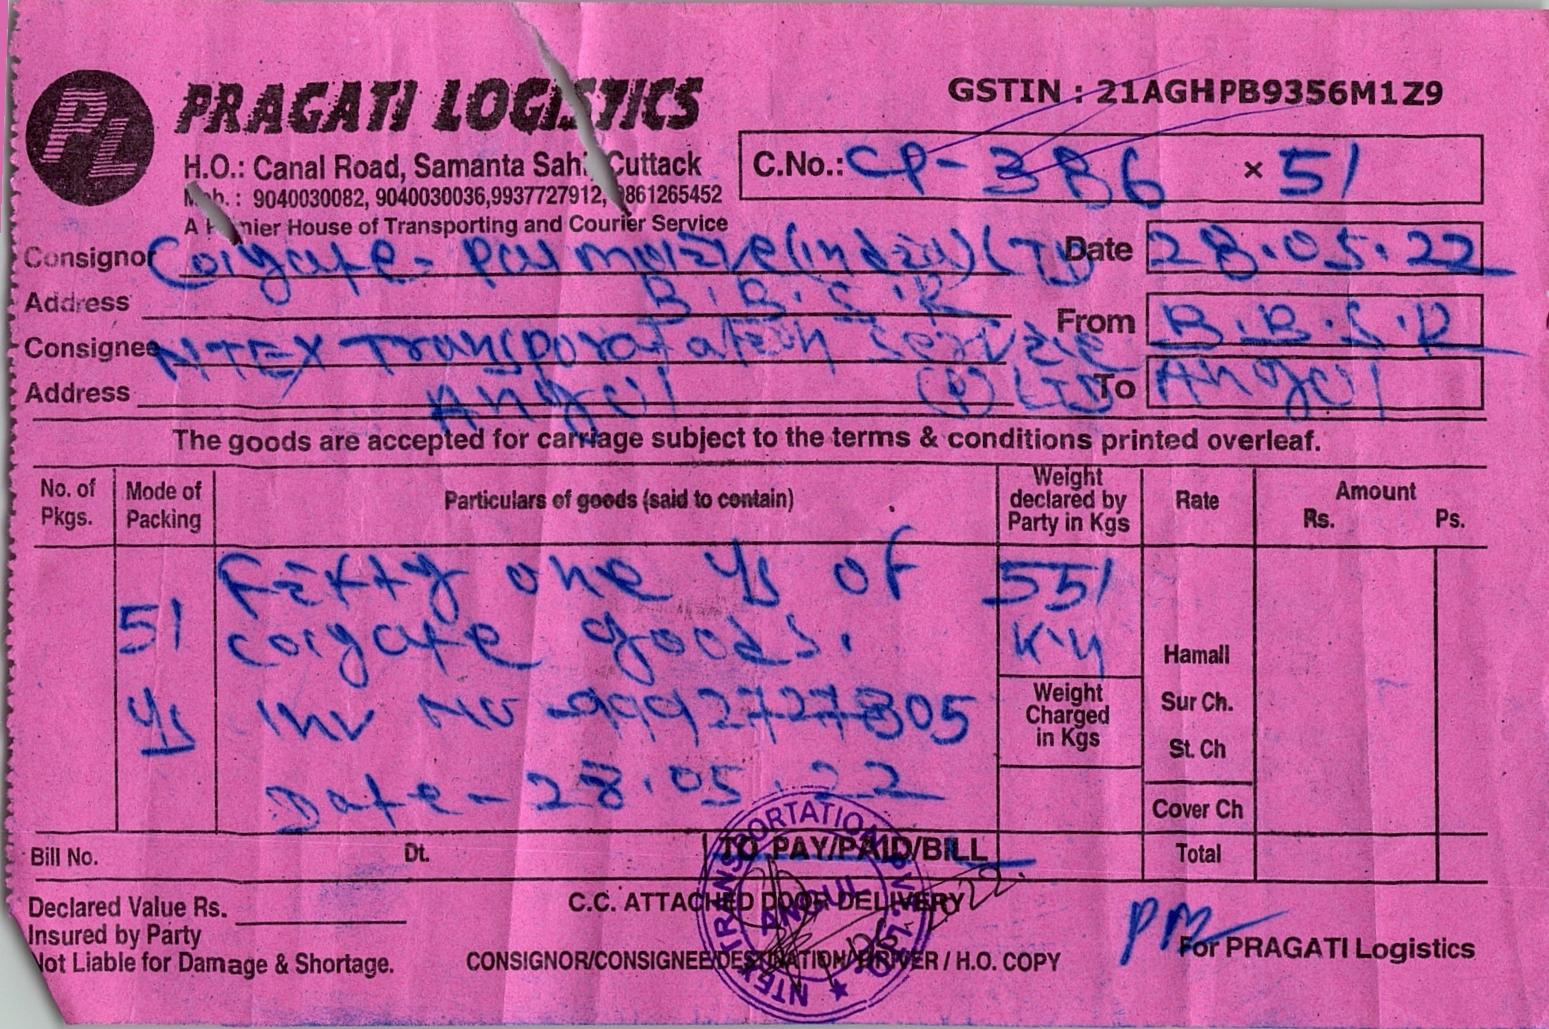 PL PRAGATI LOGISTICS
GSTIN : 21AGHPB9356M1Z9
H.O.: Canal Road, Samanta Sahi, Cuttack
C.No.: CP-386 × 51
Mob. : 9040030082, 9040030036,9937727912, 9861265452
A Premier House of Transporting and Courier Service
Consignor Colgate-Palmolive(India) LTD Date 28.05.22
Address B.B.S.R From B.B.S.R
Consignee NTEX Transporatation Service
Address Angul (P) LTD To Angul
The goods are accepted for carriage subject to the terms & conditions printed overleaf.
No. of Pkgs. Mode of Packing Particulars of goods (said to contain) Weight declared by Party in Kgs Rate Amount Rs. Ps.
Fifty one of 551
51 colgate goods. Hamall
Inv No -9992727805 Weight Charged in Kgs Sur Ch.
St. Ch
Date-28.05.22 Cover Ch
Bill No. Dt. TO PAY/PAID/BILL Total
Declared Value Rs. C.C. ATTACHED DOOR DELIVERY
Insured by Party
For PRAGATI Logistics
Not Liable for Damage & Shortage. CONSIGNOR/CONSIGNEE/DESTINATION/DRIVER / H.O. COPY
NTEX TRANSPORTATION SERVICES
ANGUL